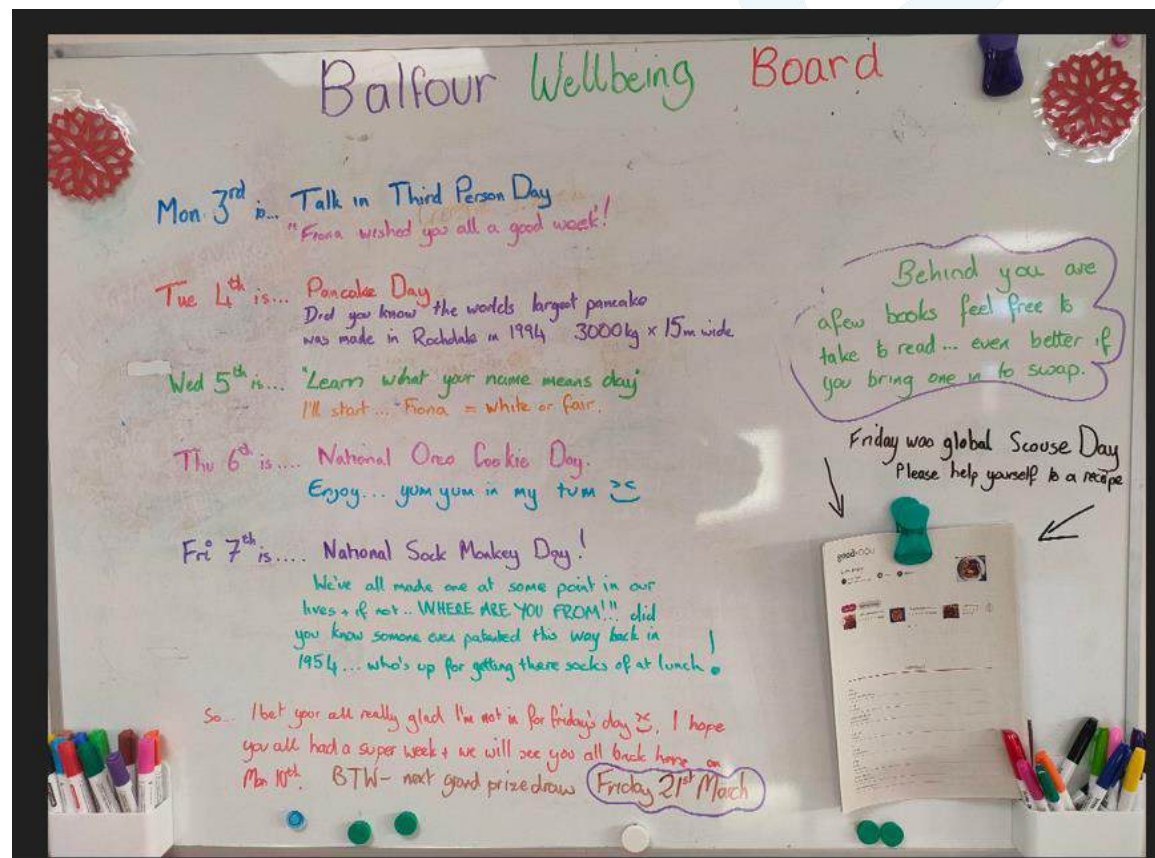 Balfour Wellbeing Board
Mon 3rd is... Talk in Third Person Day
"Fiona wished you all a good week"!
Tue 4th is... Pancake Day
Did you know the worlds largest pancake
was made in Rochdale in 1994 3000kg x 15m wide
Wed 5th is... "Learn what your name means day"
I'll start... Fiona = white or fair.
Thu 6th is.... National Oreo Cookie Day.
Enjoy... yum yum in my tum
Fri 7th is..... National Sock Monkey Day!
We've all made one at some point in our
lives + if not.. WHERE ARE YOU FROM!!" did
you know somone even patented this way back in
1954... who's up for getting there socks of at lunch!
So... I bet your all really glad I'm not in for friday's day. I hope
you all had a super week + we will see you all back here on
Mon 10th. BTW - next grand prize draw Friday 21st March
Behind you are
afew books feel free to
take to read... even better if
you bring one in to swap.
Friday was global Scouse Day
Please help yourself to a recipe
good